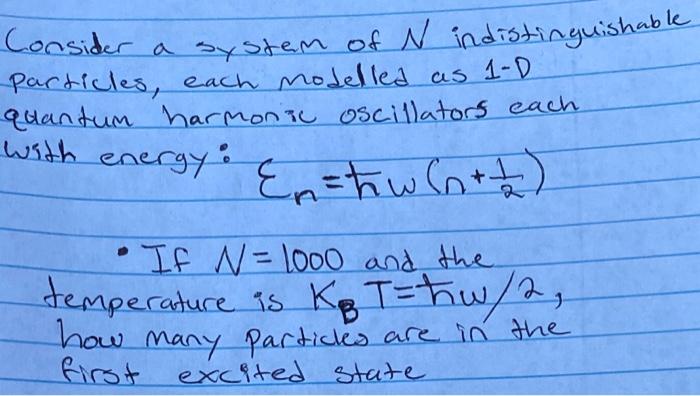 Consider a system of N indistinguishable
particles, each modelled as 1-D
quantum harmonic oscillators each
with energy:
εₙ = ħω(n+½)
• If N = 1000 and the
temperature is K_B T = ħω/2,
how many particles are in the
first excited state